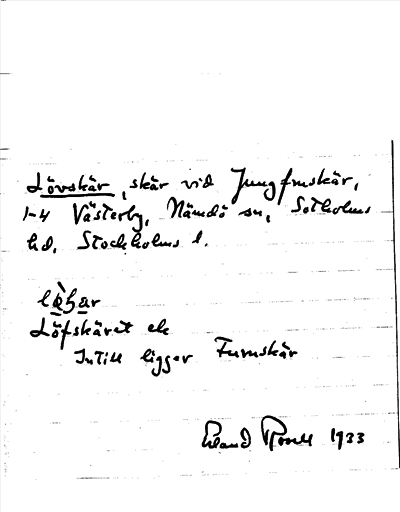 Lövskär, skär vid Jungfruskär,
1-4 Västerby, Nämdö sn, Sotholms
hd, Stockholms l.
Löfskäret ek
Intill ligger Furuskär
Erland Rosell 1933